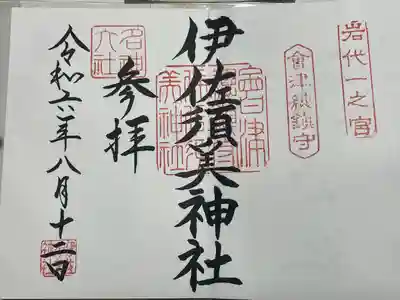 岩代一之宮
會津総鎮守
伊佐須美神社
参拝
名神大社
令和六年八月十二日